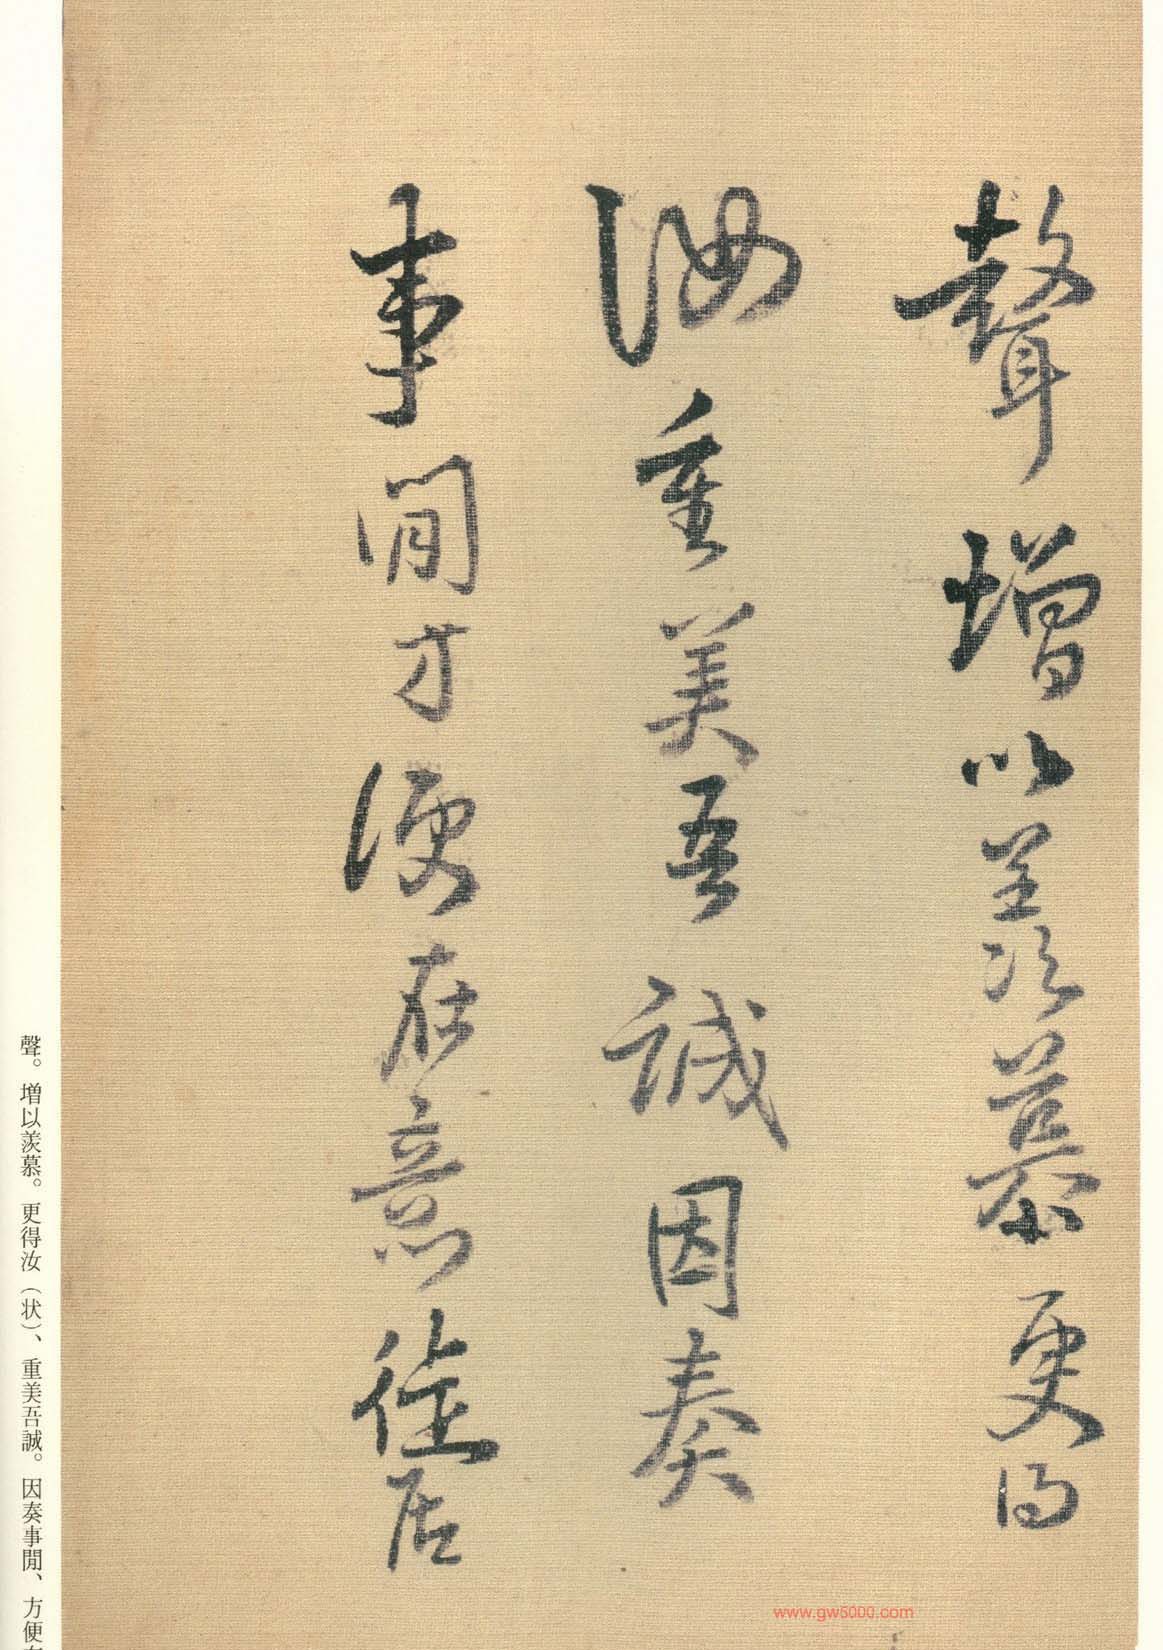 聲增以羨慕更得
汝重美吾誠因奏
事閒方便在意徃居
聲。増以羨慕。更得汝（状）、重美吾誠。因奏事閒、方便
www.gw5000.com